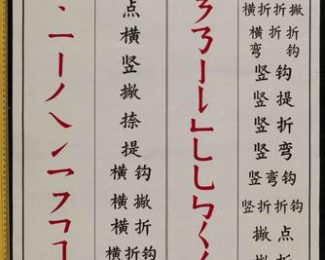 点
横
竖
撇
捺
提
横钩
横撇
横折
横折钩
横折折撇
横折折
弯钩
竖钩
竖提
竖折
竖弯
竖弯钩
竖折折钩
撇点
撇折